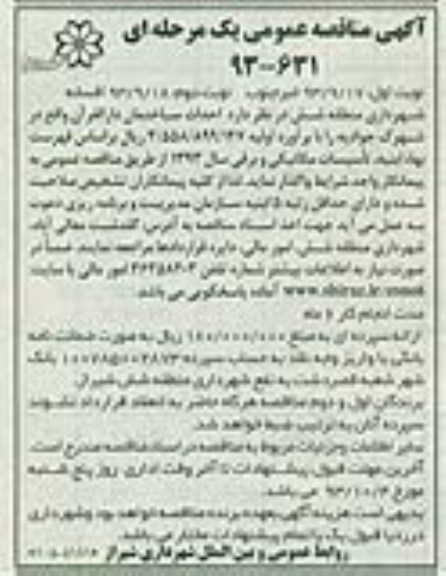 آگهی مناقصه عمومی یک مرحله ای
۹۳-۶۳۱
نوبت اول: ۹۳/۹/۱۷ خبرجنوب نوبت دوم: ۹۳/۹/۱۸ افسانه
شهرداری منطقه شش در نظر دارد احداث ساختمان دارالقرآن واقع در
شهرک جوادیه را با برآورد اولیه ریال براساس فهرست
بهاء ابنیه، تأسیسات مکانیکی و برقی سال ۱۳۹۳ از طریق مناقصه عمومی به
پیمانکار واجد شرایط واگذار نماید. لذا از کلیه پیمانکاران تشخیص صلاحیت
شده و دارای حداقل رتبه ۵ ابنیه سازمان مدیریت و برنامه ریزی دعوت
به عمل می آید جهت اخذ اسناد مناقصه به آدرس: گلدشت معالی آباد،
شهرداری منطقه شش، امور مالی، دایره قراردادها مراجعه نمایند. ضمناً در
صورت نیاز به اطلاعات بیشتر شماره تلفن امور مالی یا سایت
آماده پاسخگویی می باشد.
مدت انجام کار ۶ ماه
ارائه سپرده ای به مبلغ ۱۸۰/۰۰۰/۰۰۰ ریال به صورت ضمانت نامه
بانکی یا واریز وجه نقد به حساب سپرده بانک
شهر شعبه قصردشت به نفع شهرداری منطقه شش شیراز.
برندگان اول و دوم مناقصه هرگاه حاضر به انعقاد قرارداد نشوند
سپرده آنان به ترتیب ضبط خواهد شد.
سایر اطلاعات و جزئیات مربوط به مناقصه در اسناد مناقصه مندرج است.
آخرین مهلت قبول پیشنهادات تا آخر وقت اداری روز پنج شنبه
مورخ ۹۳/۱۰/۴ می باشد.
بدیهی است هزینه آگهی بعهده برنده مناقصه خواهد بود و شهرداری
در رد یا قبول یک یا تمام پیشنهادات مختار می باشد.
روابط عمومی و بین الملل شهرداری شیراز